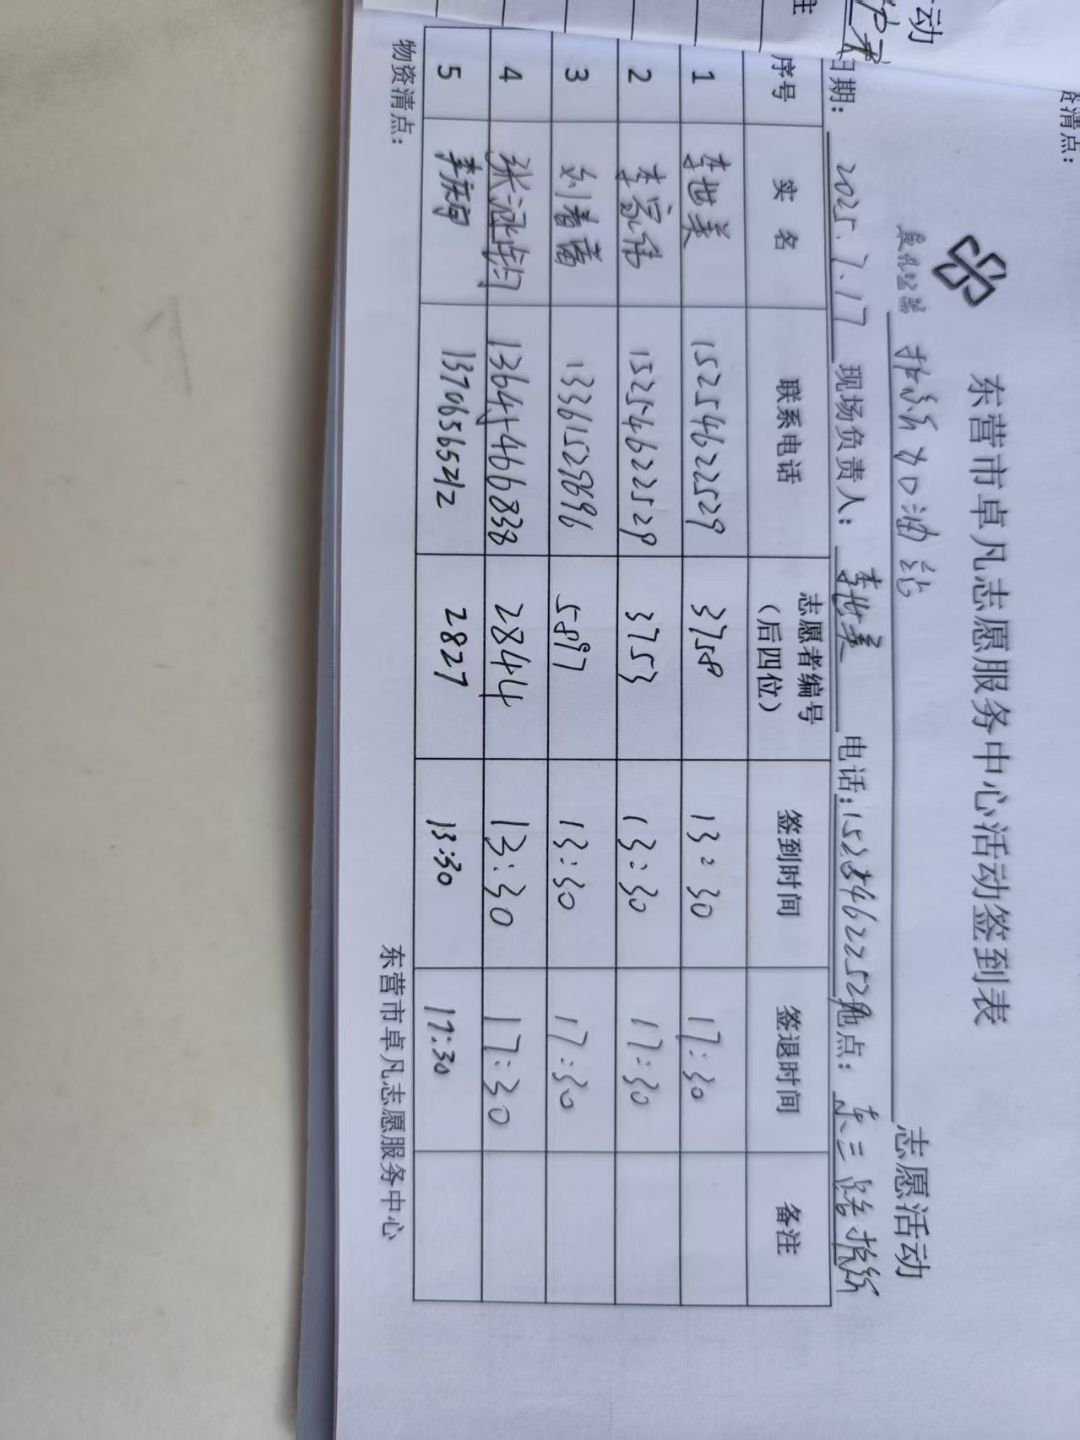 东营市卓凡志愿服务中心活动签到表
加油站 志愿活动
日期: 2025.7.17 现场负责人: 李世美 电话:15254622529 地点: 东三路
序号 实名 联系电话 志愿者编号(后四位) 签到时间 签退时间 备注
1 李世美 15254622529 3758 13:30 17:30
2 李家伟 15254622529 3753 13:30 17:30
3 刘春 13361529696 5897 13:30 17:30
4 张 13645466838 2844 13:30 17:30
5 李 13706565212 2827 13:30 17:30
物资清点: 东营市卓凡志愿服务中心